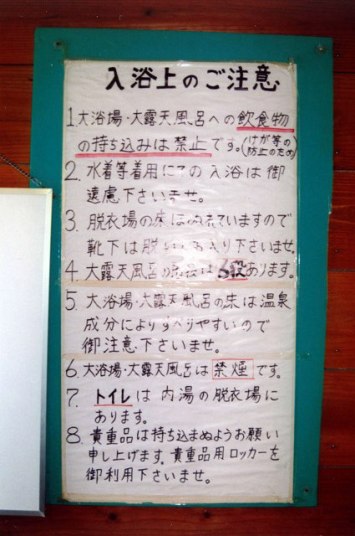 入浴上のご注意
1. 大浴場・大露天風呂への飲食物
の持ち込みは禁止です。(けが等の
防止のため)
2. 水着等着用にての入浴は御
遠慮下さいませ。
3. 脱衣場の床はぬれていますので
靴下は脱いでお入り下さいませ。
4. 大露天風呂の階段は6段あります。
5. 大浴場・大露天風呂の床は温泉
成分によりすべりやすいので
御注意下さいませ。
6. 大浴場・大露天風呂は禁煙です。
7. トイレは内湯の脱衣場に
あります。
8. 貴重品は持ち込まぬようお願い
申し上げます。貴重品用ロッカーを
御利用下さいませ。